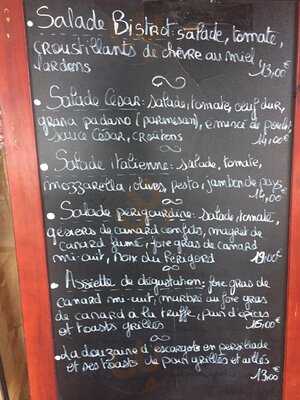 • Salade Bistrot: salade, tomate,
croustillants de chèvre au miel
lardons 13,00€
• Salade César: salade, tomate, oeuf dur,
grana padano (parmesan), emincé de poulet,
sauce César, croûtons 14,00€
• Salade italienne: salade, tomate,
mozzarella, olives, pesto, jambon de pays
14,00€
• Salade périgourdine: salade, tomate,
gésiers de canard confits, magret de
canard fumé, foie gras de canard
mi-cuit, noix du Périgord 19,00€
• Assiette de dégustation: foie gras de
canard mi-cuit, marbré au foie gras
de canard à la truffe, pain d'épices
et toasts grillés 15,00€
• La douzaine d'escargots en persillade
et ses toasts de pain grillés et aillés
13,00€